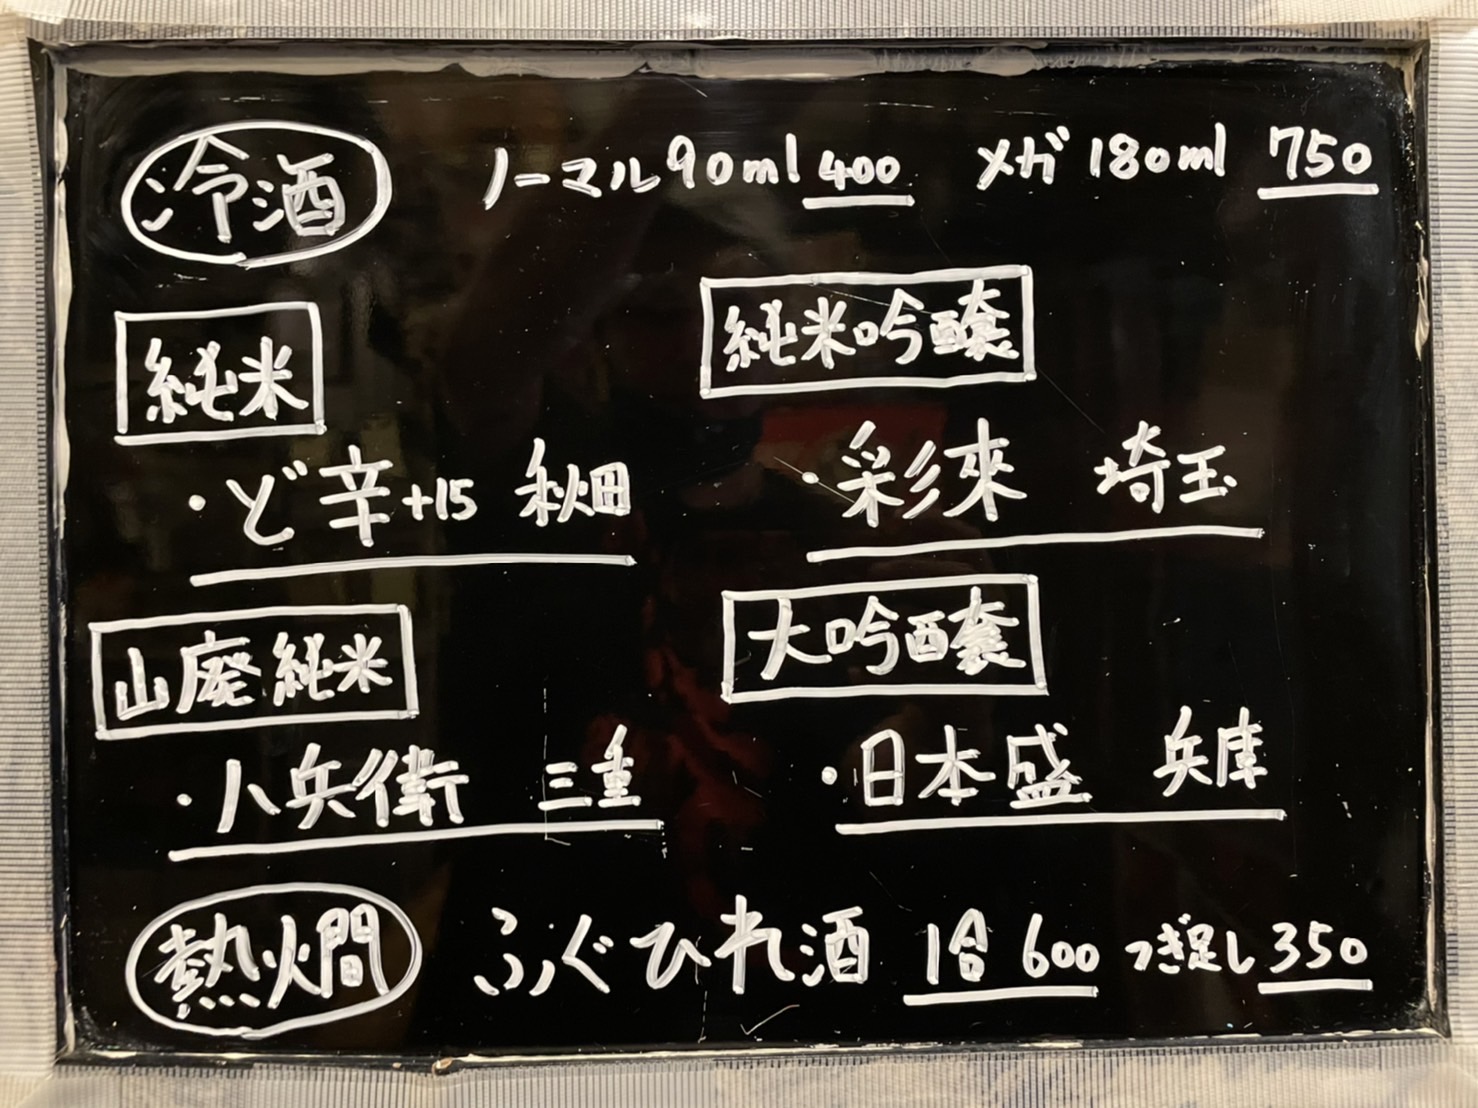 冷酒 ノーマル90ml 400 メガ 180ml 750
純米
・ど辛+15 秋田
純米吟醸
・彩來 埼玉
山廃純米
・八兵衛 三重
大吟醸
・日本盛 兵庫
熱燗 ふぐひれ酒 1合 600 つぎ足し 350